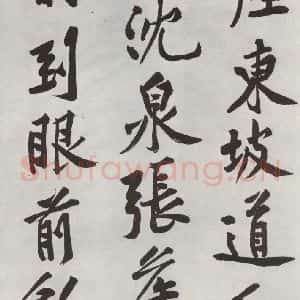 東坡道
沈泉張
到眼前
Shufawang.CN